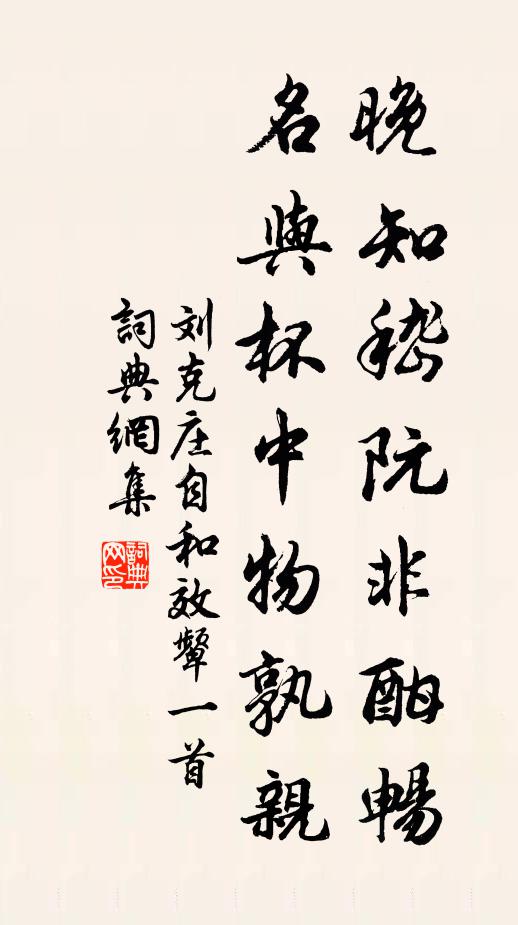 晚知嵇阮非酣暢
名與杯中物孰親
刘克庄自和效颦一首
詞典網集
詞典网印